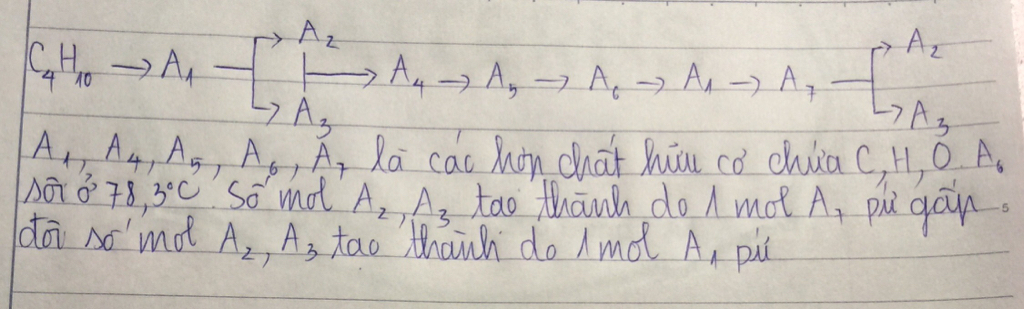 C₄H₁₀ → A₁ → A₂ A₃ → A₄ → A₅ → A₆ → A₁ → A₇ → A₂ A₃
A₁, A₄, A₅, A₆, A₇ là các hợp chất hữu cơ chứa C, H, O. A₆
sôi ở 78,3°C. Số mol A₂, A₃ tạo thành do 1 mol A₇ pứ gấp
đôi số mol A₂, A₃ tạo thành do 1 mol A₁ pứ